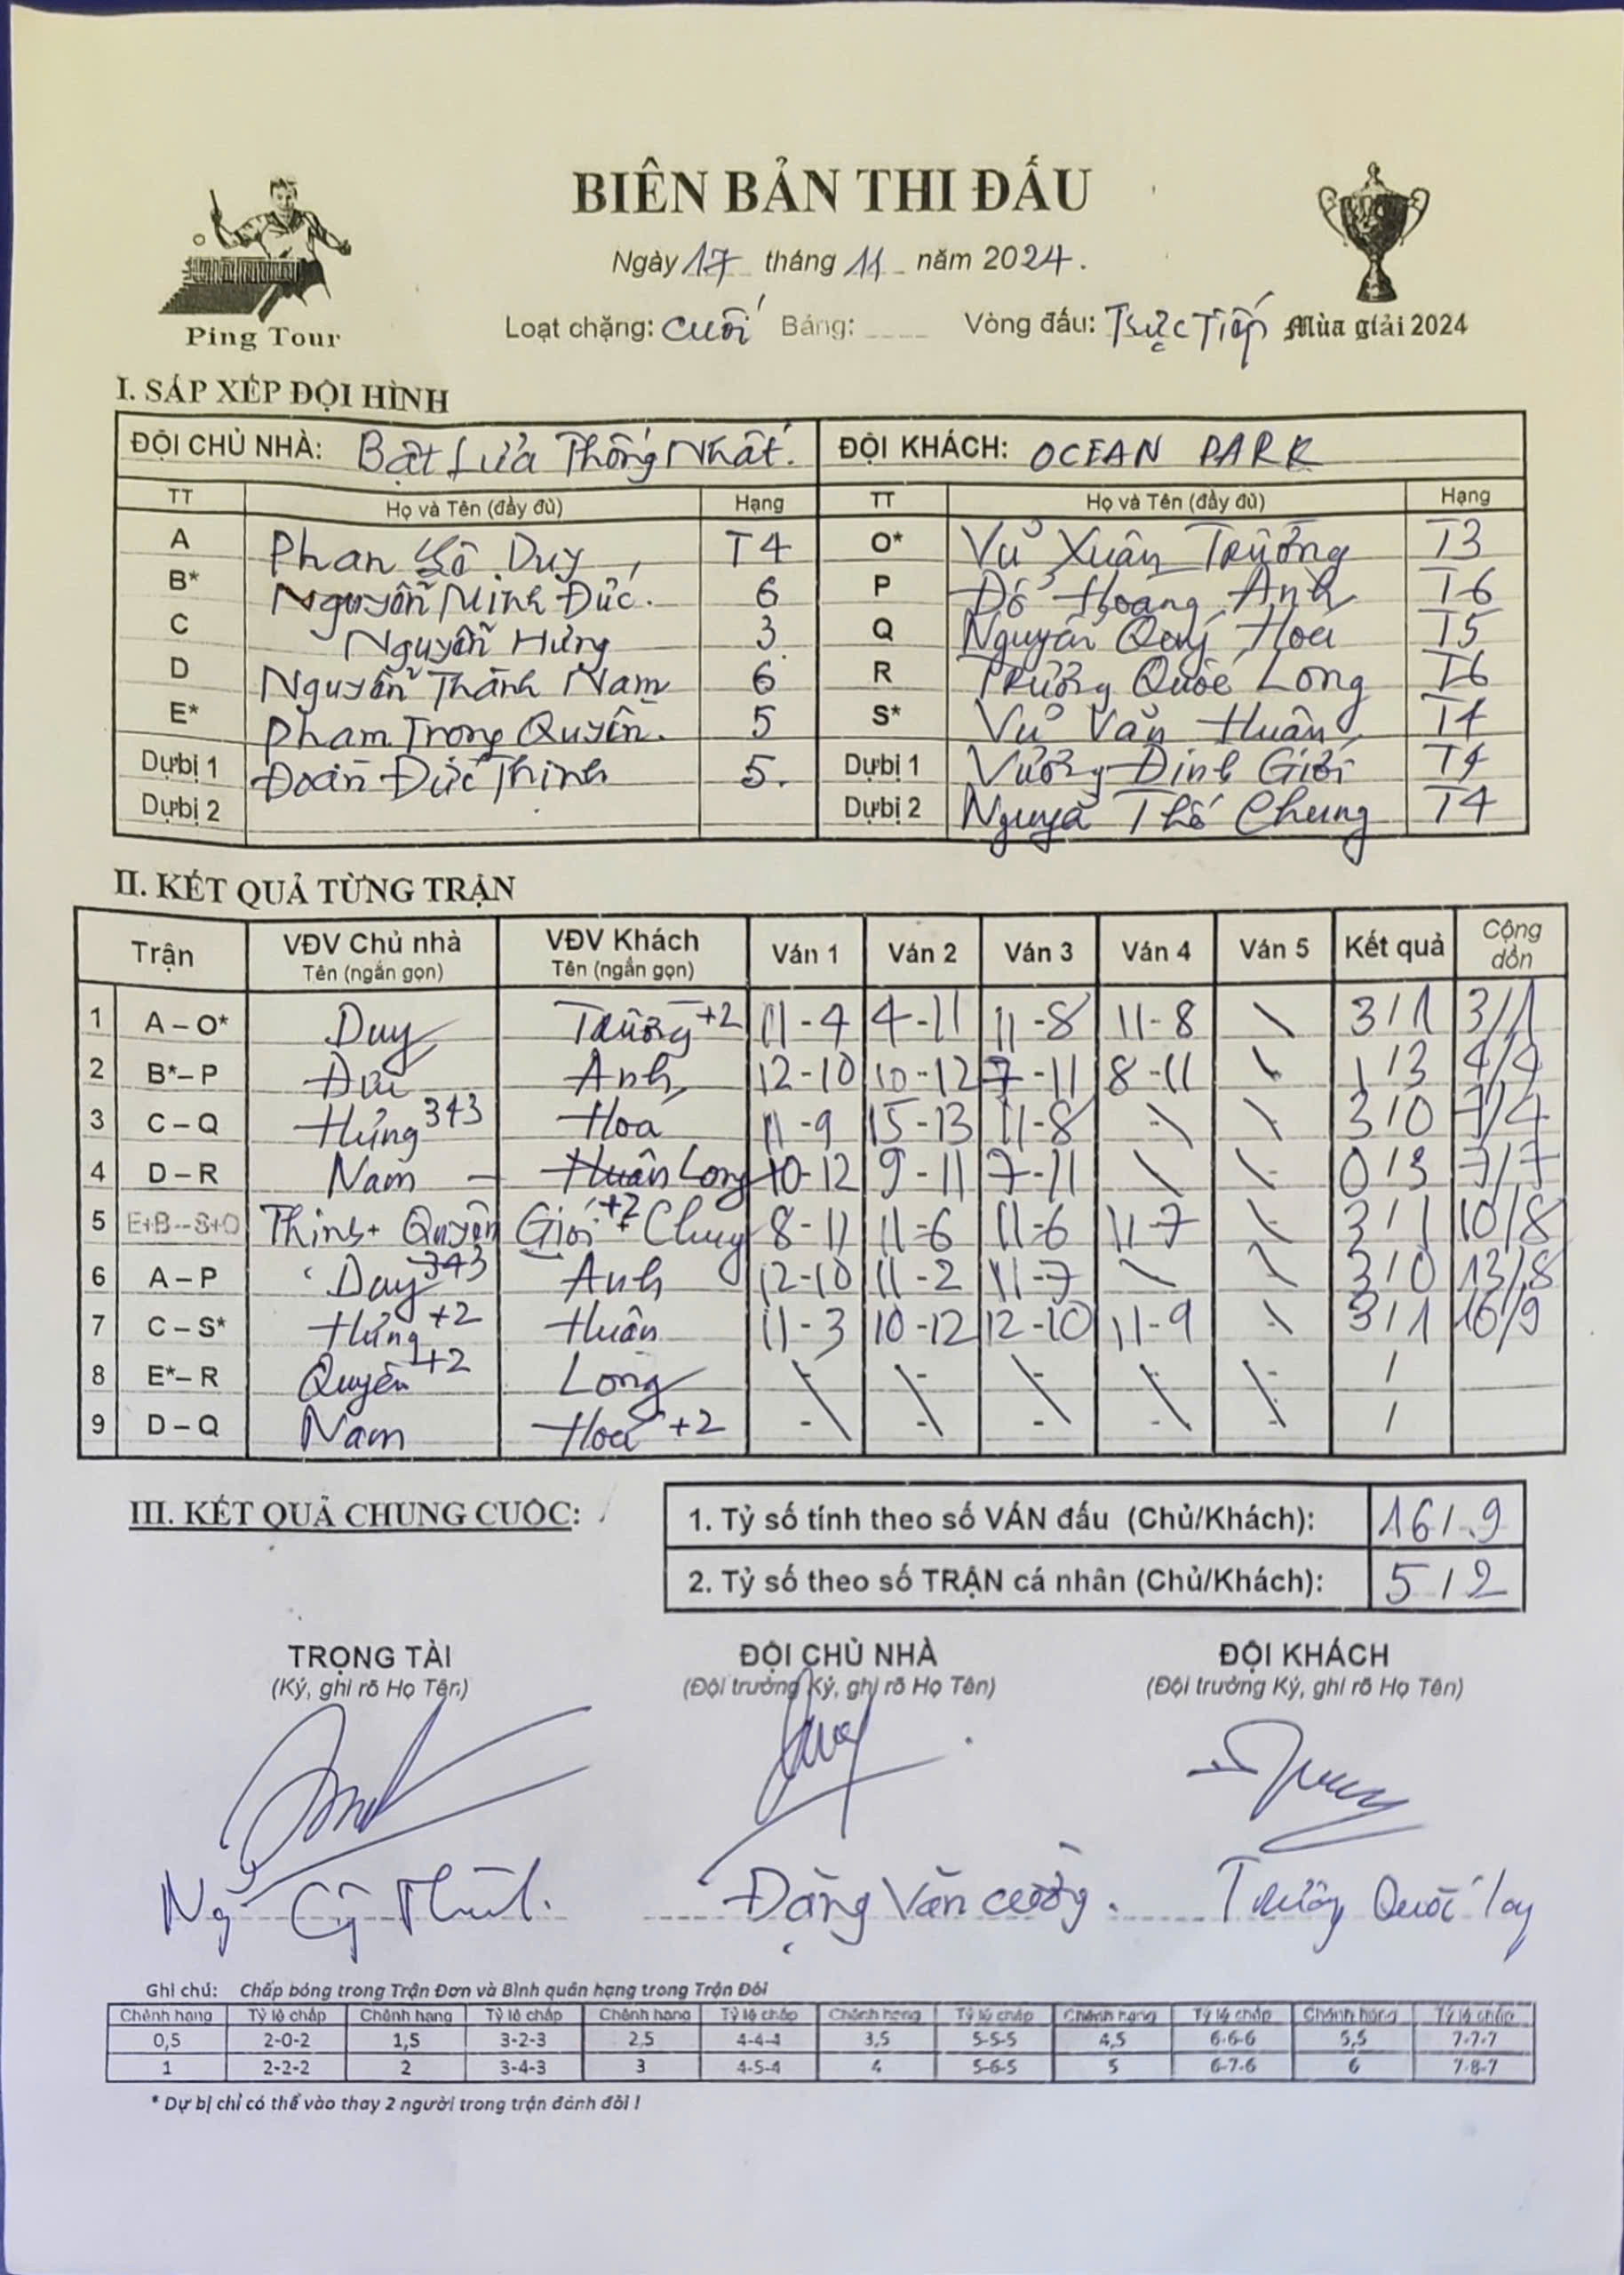 BIÊN BẢN THI ĐẤU
Ngày 17 tháng 11 năm 2024.
Ping Tour
Loạt chặng: Cuối Bảng: ____ Vòng đấu: Trực Tiếp Mùa giải 2024
I. SẮP XẾP ĐỘI HÌNH
ĐỘI CHỦ NHÀ: Bật Lửa Thống Nhất. ĐỘI KHÁCH: OCEAN PARK
TT Họ và Tên (đầy đủ) Hạng TT Họ và Tên (đầy đủ) Hạng
A Phan Duy T4 O* Vũ Xuân Trường T3
B* Nguyễn Minh Đức. 6 P Đỗ Hoàng Anh T6
C Nguyễn Hưng 3 Q Nguyễn Quý Hoà T5
D Nguyễn Thành Nam 6 R Trương Quốc Long T6
E* Phạm Trọng Quyền. 5 S* Vũ Văn Huân T4
Dự bị 1 Đoàn Đức Thịnh 5. Dự bị 1 Vương Đình Giới T4
Dự bị 2 Dự bị 2 Nguyễn Thế Chung T4
II. KẾT QUẢ TỪNG TRẬN
Trận VĐV Chủ nhà Tên (ngắn gọn) VĐV Khách Tên (ngắn gọn) Ván 1 Ván 2 Ván 3 Ván 4 Ván 5 Kết quả Cộng dồn
1 A – O* Duy Trường +2 11-4 4-11 11-8 11-8 \ 3/1 3/1
2 B* – P Đức Anh 12-10 10-12 7-11 8-11 \ 1/3 4/4
3 C – Q Hưng 343 Hoà 11-9 15-13 11-8 \ \ 3/0 7/4
4 D – R Nam – Huân Long 10-12 9-11 7-11 \ \ 0/3 7/7
5 E+B – S+O Thịnh + Quyền Giới +2 + Chung 8-11 11-6 11-6 11-7 \ 3/1 10/8
6 A – P Duy 343 Anh 12-10 11-2 11-7 \ \ 3/0 13/8
7 C – S* Hưng +2 Huân 11-3 10-12 12-10 11-9 \ 3/1 16/9
8 E* – R Quyền +2 Long \ \ \ \ \ /
9 D – Q Nam Hoà +2 \ \ \ \ \ /
III. KẾT QUẢ CHUNG CUỘC:
1. Tỷ số tính theo số VÁN đấu (Chủ/Khách): 16/9
2. Tỷ số theo số TRẬN cá nhân (Chủ/Khách): 5/2
TRỌNG TÀI ĐỘI CHỦ NHÀ ĐỘI KHÁCH
(Ký, ghi rõ Họ Tên) (Đội trưởng Ký, ghi rõ Họ Tên) (Đội trưởng Ký, ghi rõ Họ Tên)
Đặng Văn Cường. Trương Quốc Long
Ghi chú: Chấp bóng trong Trận Đơn và Bình quân hạng trong Trận Đôi
Chênh hạng Tỷ lệ chấp Chênh hạng Tỷ lệ chấp Chênh hạng Tỷ lệ chấp Chênh hạng Tỷ lệ chấp Chênh hạng Tỷ lệ chấp Chênh hạng Tỷ lệ chấp
0,5 2-0-2 1,5 3-2-3 2,5 4-4-4 3,5 5-5-5 4,5 6-6-6 5,5 7-7-7
1 2-2-2 2 3-4-3 3 4-5-4 4 5-6-5 5 6-7-6 6 7-8-7
* Dự bị chỉ có thể vào thay 2 người trong trận đánh đôi !